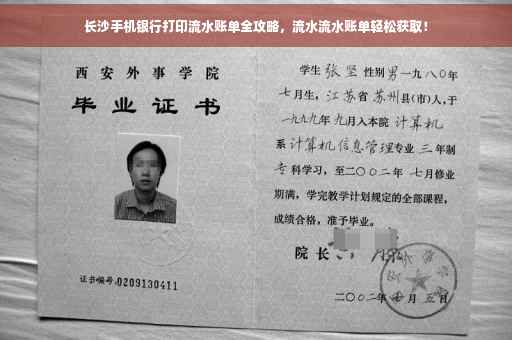 长沙手机银行打印流水账单全攻略，流水流水账单轻松获取！
西安外事学院
毕业证书
证书编号:0209130411
学生张坚性别男一九八〇年
七月生，江苏省苏州县(市)人,于
一九九九年九月入本院计算机
系计算机信息管理专业三年制
专科学习，至二〇〇二年七月修业
期满，学完教学计划规定的全部课程，
成绩合格，准予毕业。
院长
二〇〇二年 月五日